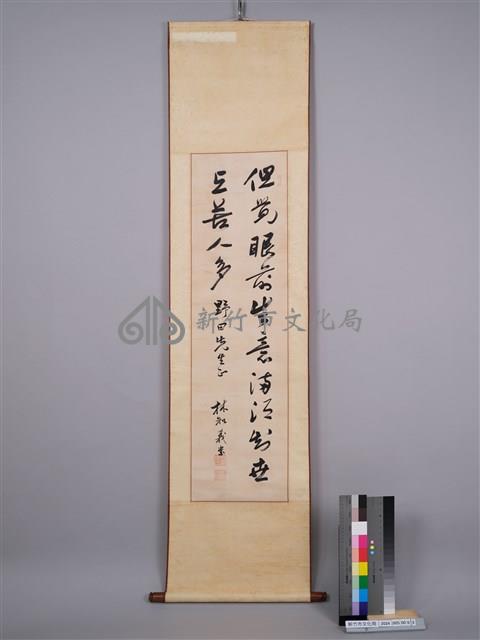 但覺眼前生意滿須知世
上善人多 野田先生正
林知義書
新竹市文化局
新竹市文化局